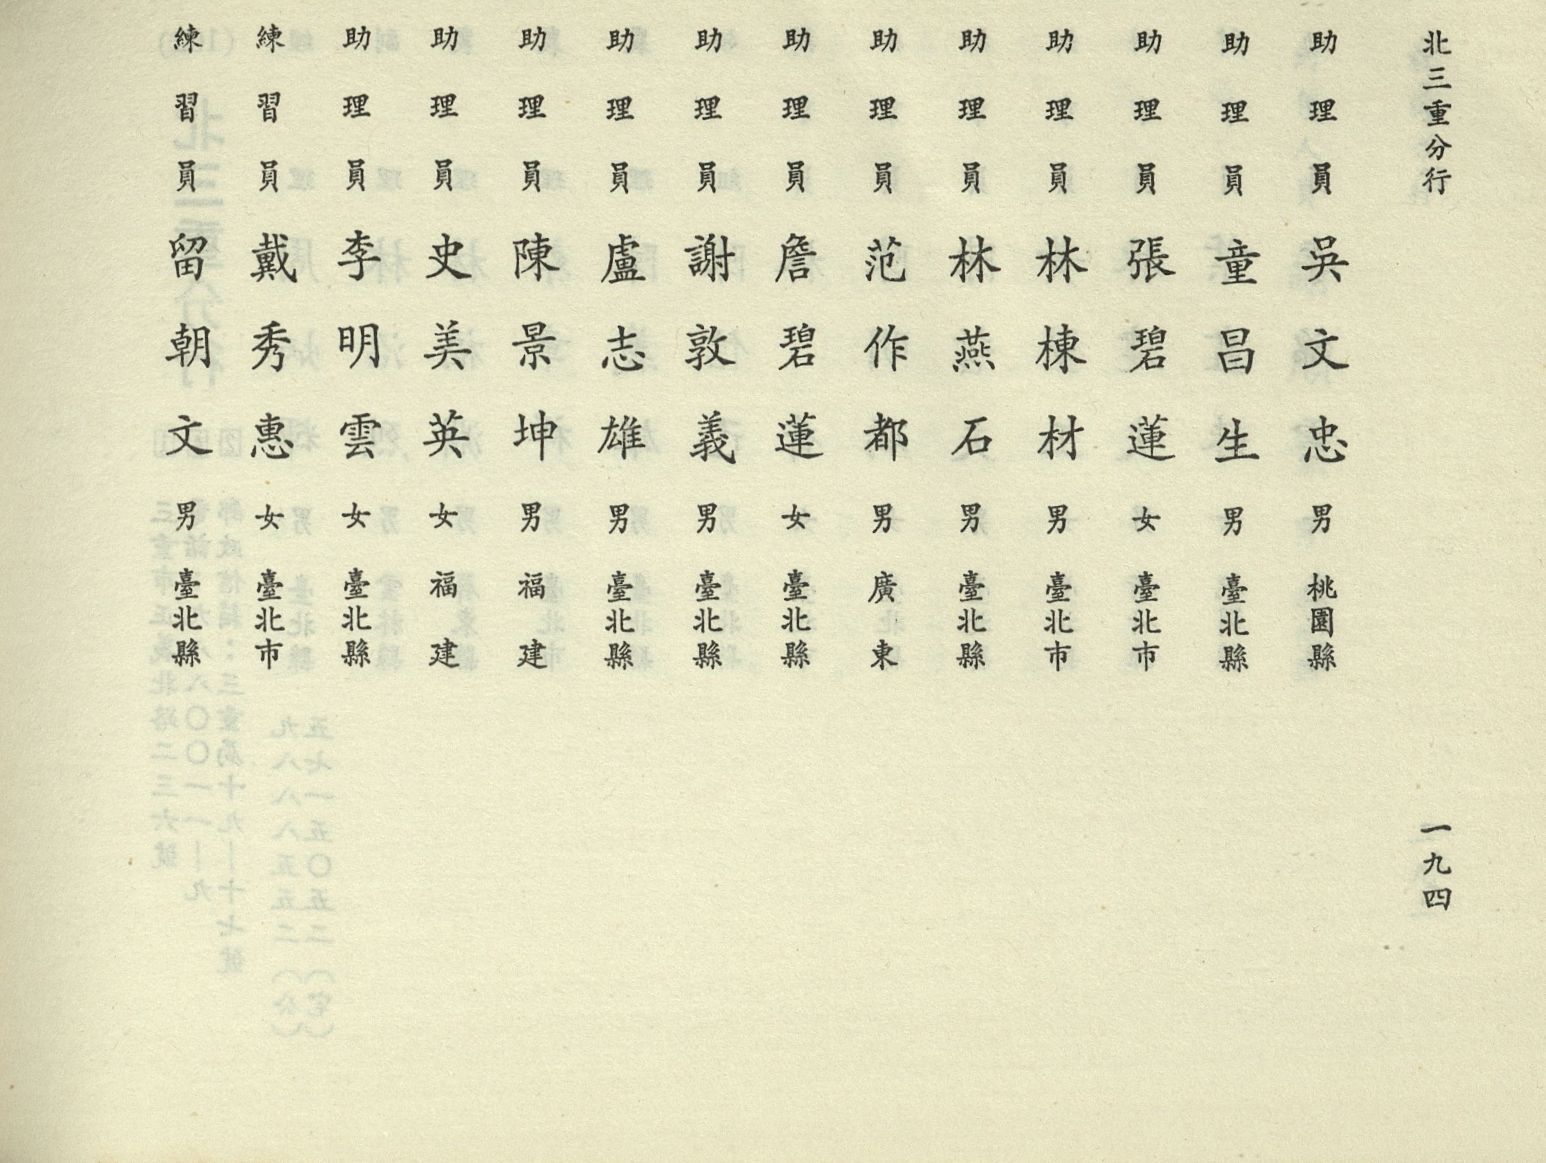 北三重分行 一九四
助理員 吳文忠 男 桃園縣
助理員 童昌生 男 臺北縣
助理員 張碧蓮 女 臺北市
助理員 林棟材 男 臺北市
助理員 林燕石 男 臺北縣
助理員 范作都 男 廣東
助理員 詹碧蓮 女 臺北縣
助理員 謝敦義 男 臺北縣
助理員 盧志雄 男 臺北縣
助理員 陳景坤 男 福建
助理員 史美英 女 福建
助理員 李明雲 女 臺北縣
練習員 戴秀惠 女 臺北市
練習員 留朝文 男 臺北縣